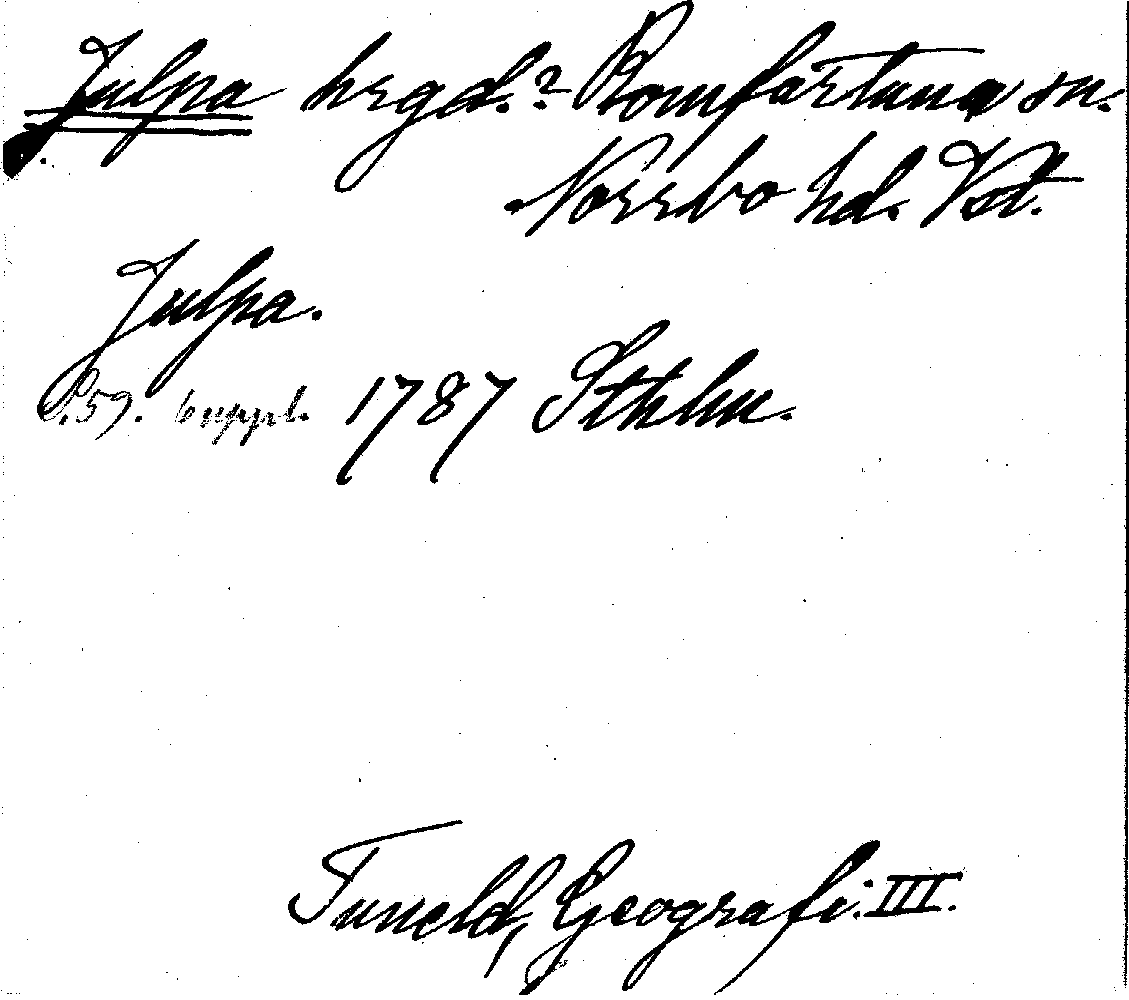 Julpa hrgd.? Romfartuna sn.
Norrbo hd. Vstl.
Julpa.
S. 59. suppl. 1787 Sthlm.
Tuneld, Geografi. III.